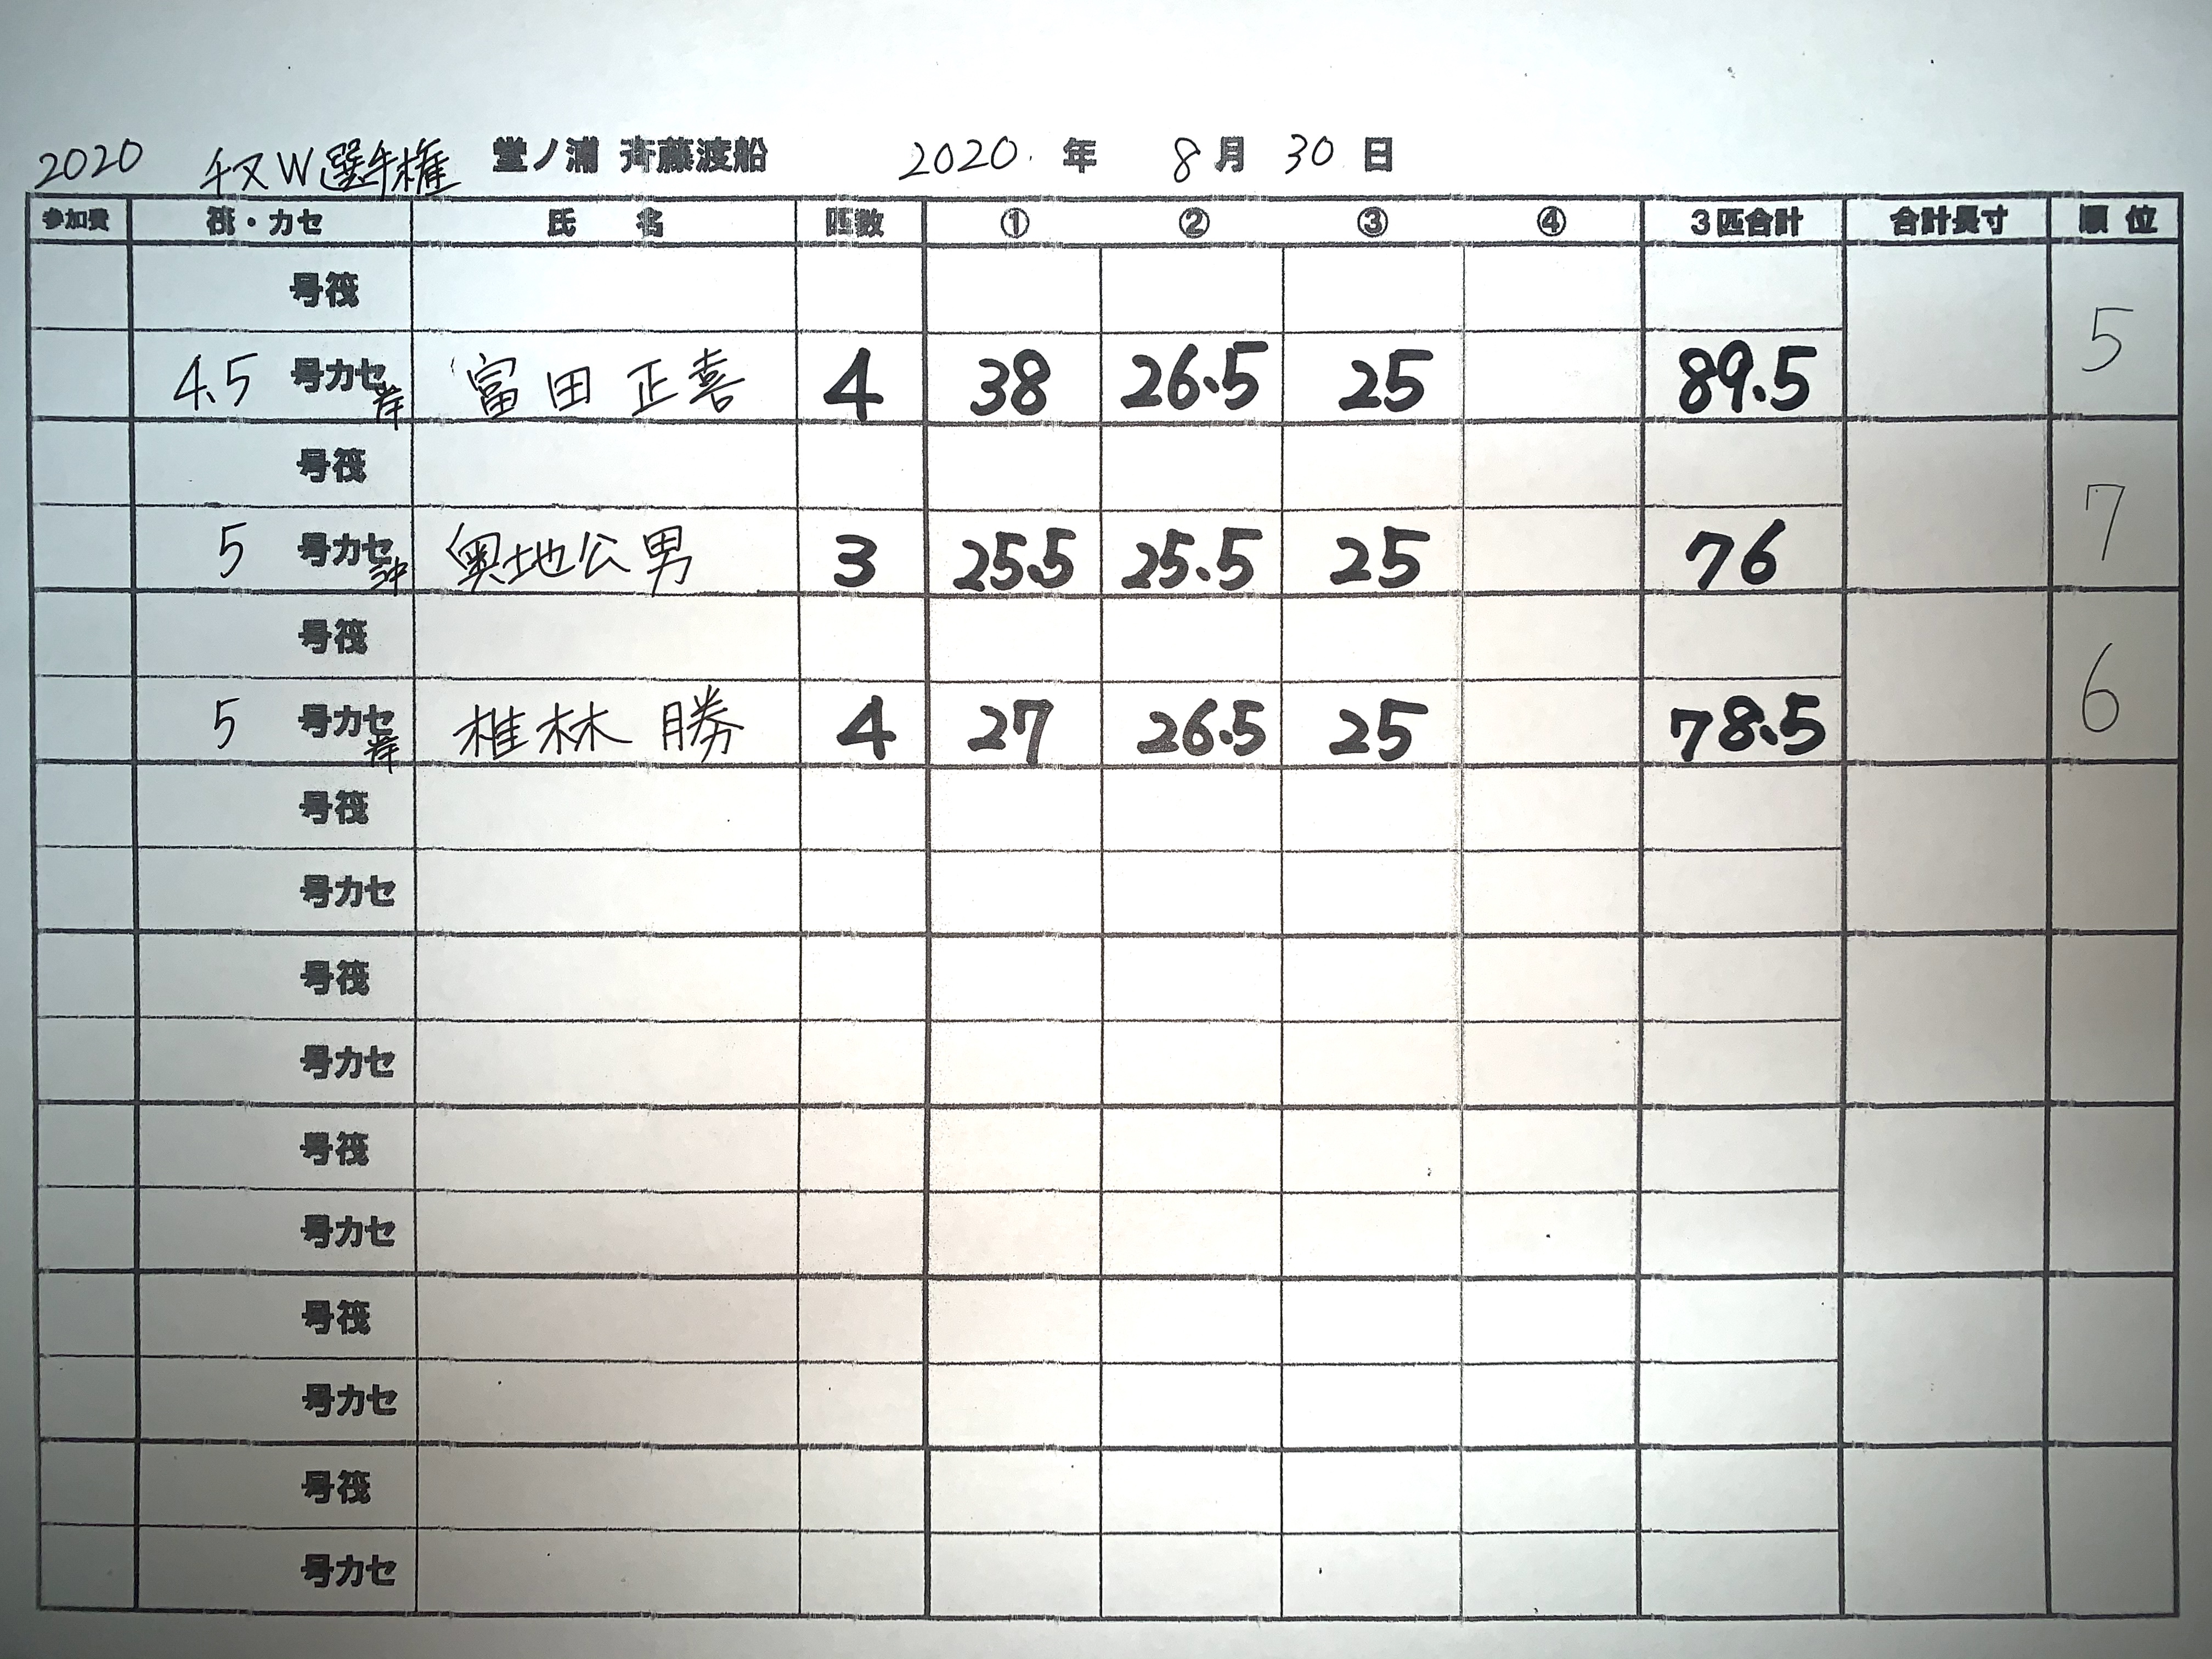 2020 チヌW選手権 堂ノ浦 斉藤渡船 2020.年 8月 30日
参加費 筏・カセ 氏 名 匹数 ① ② ③ ④ 3匹合計 合計長寸 順 位
号筏 5
4.5 号カセ岸 富田 正喜 4 38 26.5 25 89.5
号筏 7
5 号カセ沖 奥地公男 3 25.5 25.5 25 76
号筏 6
5 号カセ岸 椎林 勝 4 27 26.5 25 78.5
号筏
号カセ
号筏
号カセ
号筏
号カセ
号筏
号カセ
号筏
号カセ